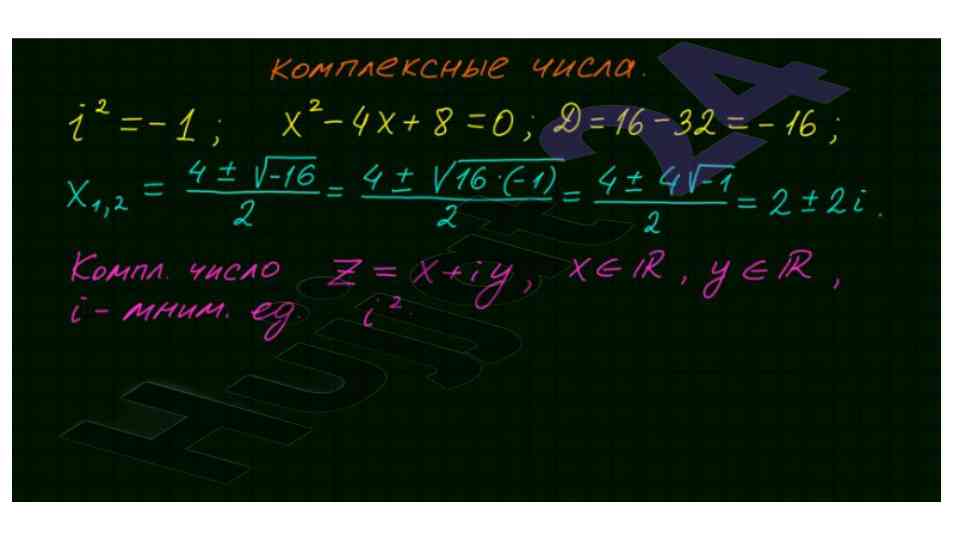 Комплексные числа.
i² = -1 ; x² - 4x + 8 = 0 ; D = 16 - 32 = -16 ;
x₁,₂ = (4 ± √-16)/2 = (4 ± √16·(-1))/2 = (4 ± 4√-1)/2 = 2 ± 2i .
Компл. число Z = x + iy , x ∈ ℝ , y ∈ ℝ ,
i - мним. ед. i²
Hujjat 24